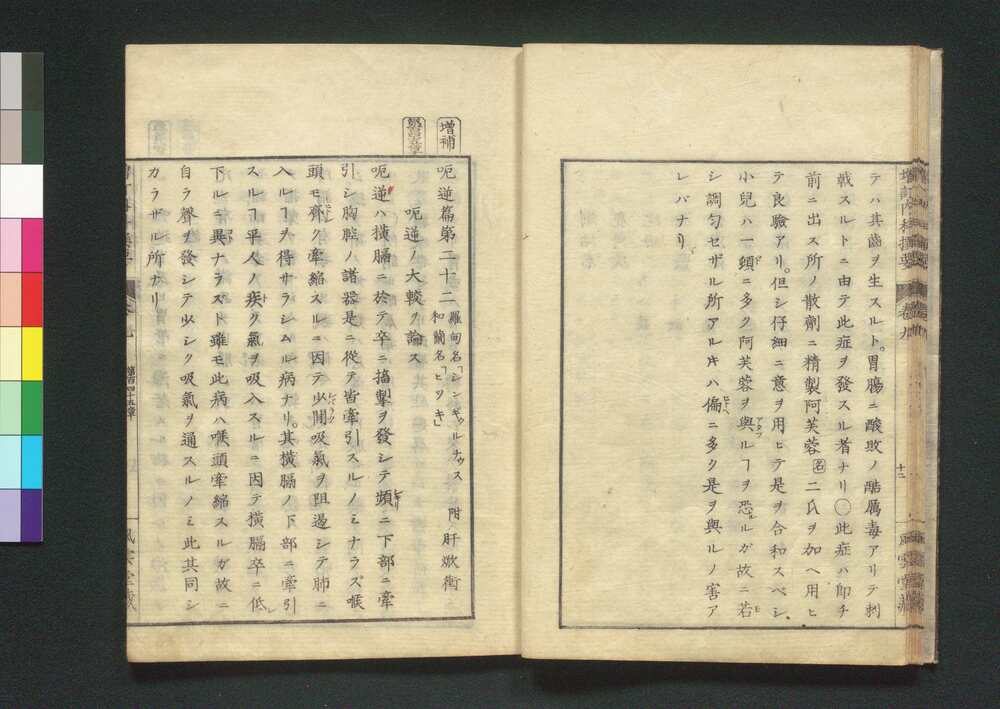 テハ其齒ヲ生スルト。胃腸ニ酸敗ノ酷厲毒アリテ刺
戟スルトニ由テ此症ヲ發スル者ナリ○此症ハ即チ
前ニ出ス所ノ散劑ニ精製阿芙蓉名二氏ヲ加ヘ用ヒ
テ良驗アリ。但シ仔細ニ意ヲ用ヒテ是ヲ合和スベシ
小兒ハ一頓ニ多ク阿芙蓉ヲ與ルヿヲ恐ルルガ故ニ若
シ調匀セザル所アルキハ偏ニ多ク是ヲ與ルノ害ア
レバナリ
十三
増補
呃逆篇第二十二 羅甸名「シンギュルナゥス 和蘭名「ヒツキ」 附 肝欬衝
呃逆ノ大較ヲ論ス
呃逆ハ横膈ニ於テ卒ニ搐掣ヲ發シテ頻ニ下部ニ牽
引シ胸腔ノ諸器是ニ從テ皆牽引スルノミナラズ喉
頭モ齊ク牽縮スルニ因テ少間吸氣ヲ阻遏シテ肺ニ
入ルヿヲ得サラシムル病ナリ。其横膈ノ下部ニ牽引
スルヿ平人ノ疾ク氣ヲ吸入スルニ因テ横膈卒ニ低
下ルニ異ナラスト雖モ此病ハ喉頭牽縮スルガ故ニ
自ラ聲ヲ發シテ少シク吸氣ヲ通スルノミ此其同シ
カラザル所ナリ